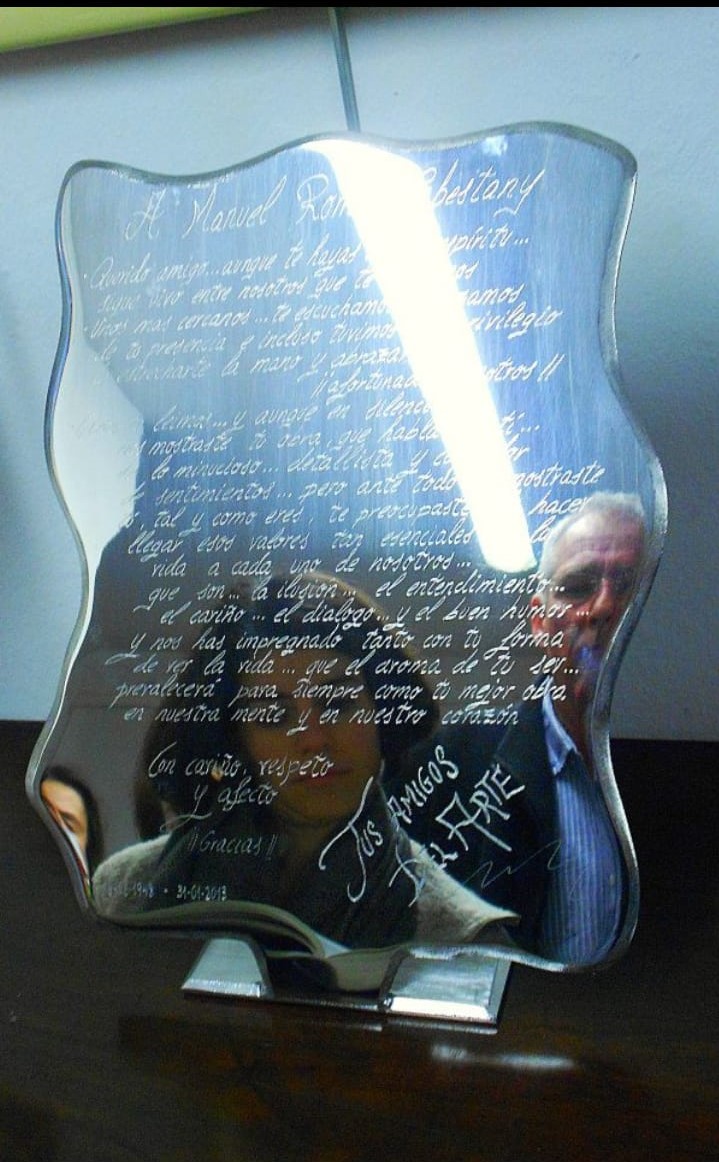 A Manuel Rom bestany
Querido amigo... aunque te hayas espíritu...
sigue vivo entre nosotros que te
unos mas cercanos... te escuchamos
de tu presencia e incluso tuvimos privilegio
estrecharte la mano y abrazar
!! afortunad nosotros !!
leirnos... y aunque en silenc
nos mostraste tu obra, que habla tí...
lo minucioso... detallista y
de sentimientos... pero ante todo
tal y como eres, te preocupaste hacer
llegar esos valores tan esenciales la
vida a cada uno de nosotros...
que son... la ilusión... el entendimiento...
el cariño... el dialogo... y el buen humor...
y nos has impregnado tanto con tu forma
de ver la vida... que el aroma de tu ser...
prevalecerá para siempre como tu mejor obra
en nuestra mente y en nuestro corazón
Con cariño, respeto
y afecto
!! Gracias !!
TUS AMIGOS
DEL ARTE
1948 - 31-01-2013